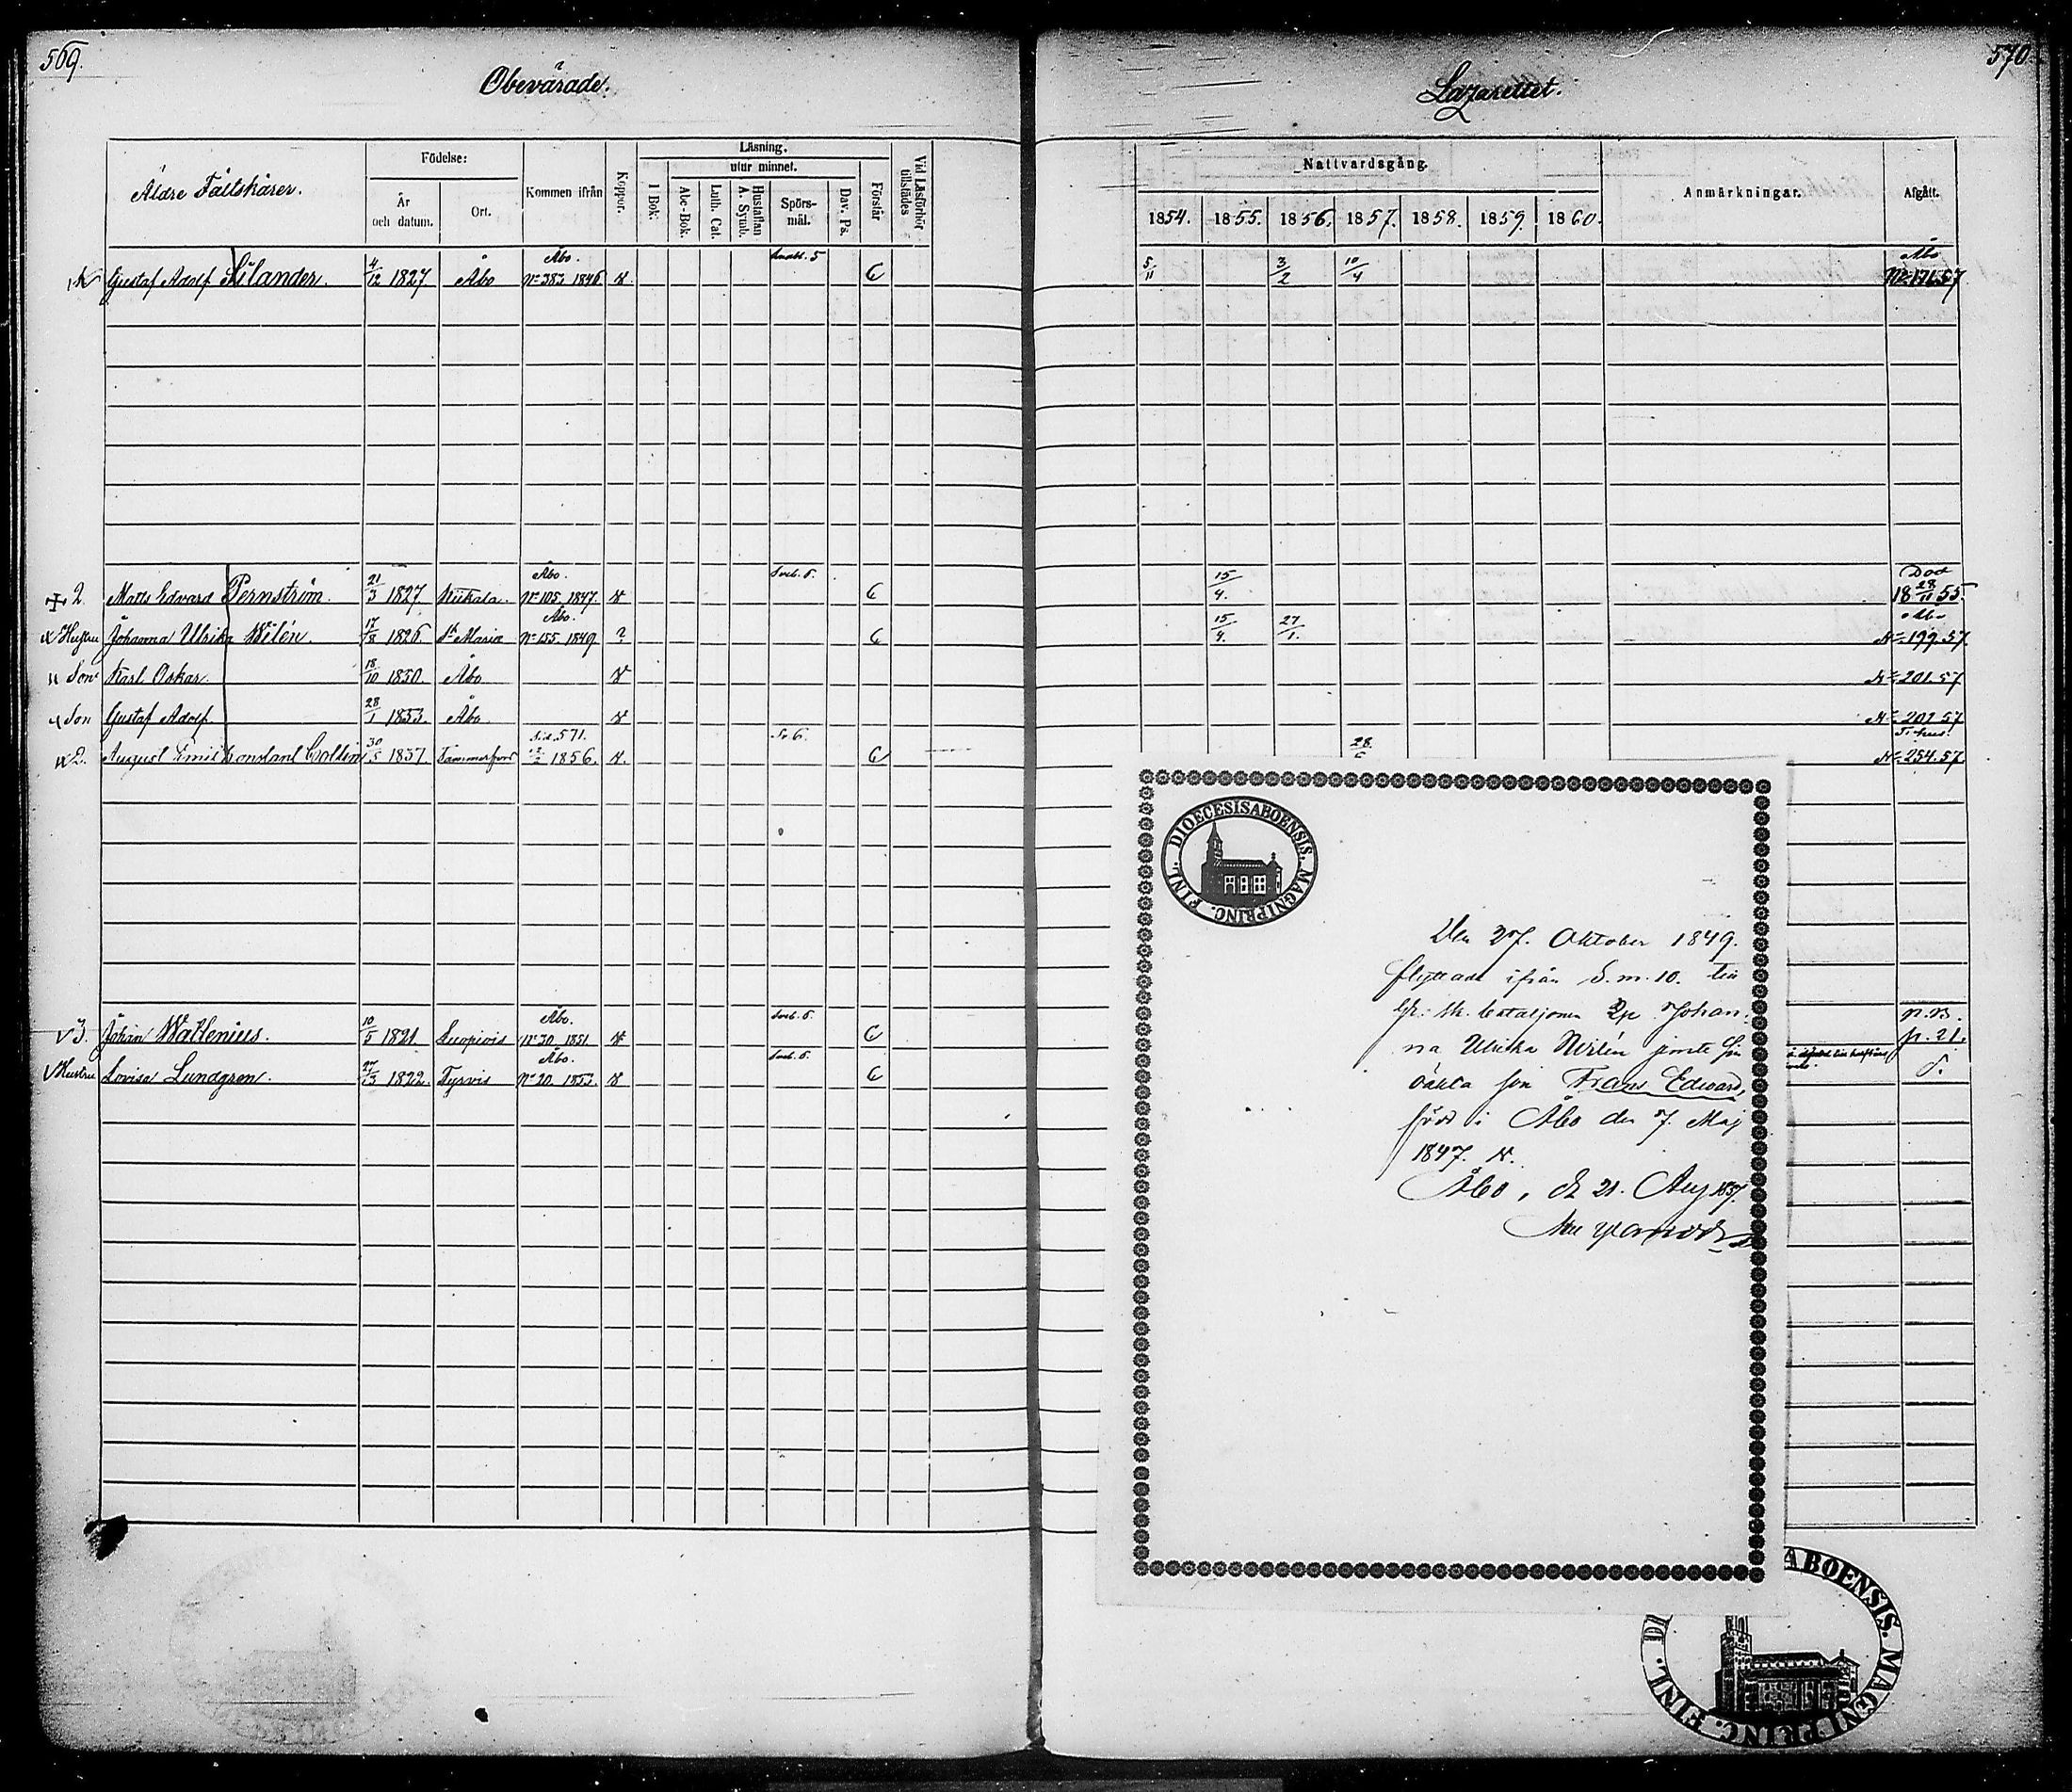 569.
Obevärade.
Äldre Fältskärer.
Födelse:
År och datum.
Ort.
Kommen ifrån
Koppor.
Läsning.
I Bok.
utur minnet.
Abc-Bok.
Luth. Cat.
Hustaflan A. Symb.
Spörs-mål.
Dav. Ps.
Förstår
Vid Läsförhör tillstädes
Gustaf Adolf Silander. 4/12 1827 Åbo Åbo. No 383 1846.
+ 2. Matts Edvard Pernström. 21/3 1827 Kiikala. Åbo. No 105. 1847.
Hustru Johanna Ulrika Wilén. 17/8 1826. St Mariæ Åbo. No 155. 1849. ?
Son Karl Oskar. 18/10 1850. Åbo
Son Gustaf Adolf. 28/1 1853. Åbo.
2. August Emil Constant 30/5 1837. Tammerfors Sid. 571. 1856.
3. Johan Wallenius. 10/5 1821. Åbo. No 30. 1851
Hustru Lovisa Lundgren. 27/3 1822. Tyrvis Åbo. No 20. 1853.
570.
Lazarettet.
Nattvardsgång.
1854. 1855. 1856. 1857. 1858. 1859. 1860.
Anmärkningar.
Afgått.
5/11 3/2 10/4 Åbo No 171.57
15/4. Död 18 28/11 55.
15/4. 27/1. Åbo No 199.57
No 201.57
No 202.57
28 No 254.57
DIOECESIS ABOENSIS. MAGNI PRINC. FINL.
Den 27. Oktober 1849.
flyttade ifrån S. m. 10. till
Gr: Sk. bataljonen Johan-
na Ulrika Wilén jemte sin
oäkta son Frans Edward,
född i Åbo den 7. Maj
1847.
Åbo, d 21. Aug 1857.
p. 21.
ABOENSIS. MAGNI PRINC. FINL. DI